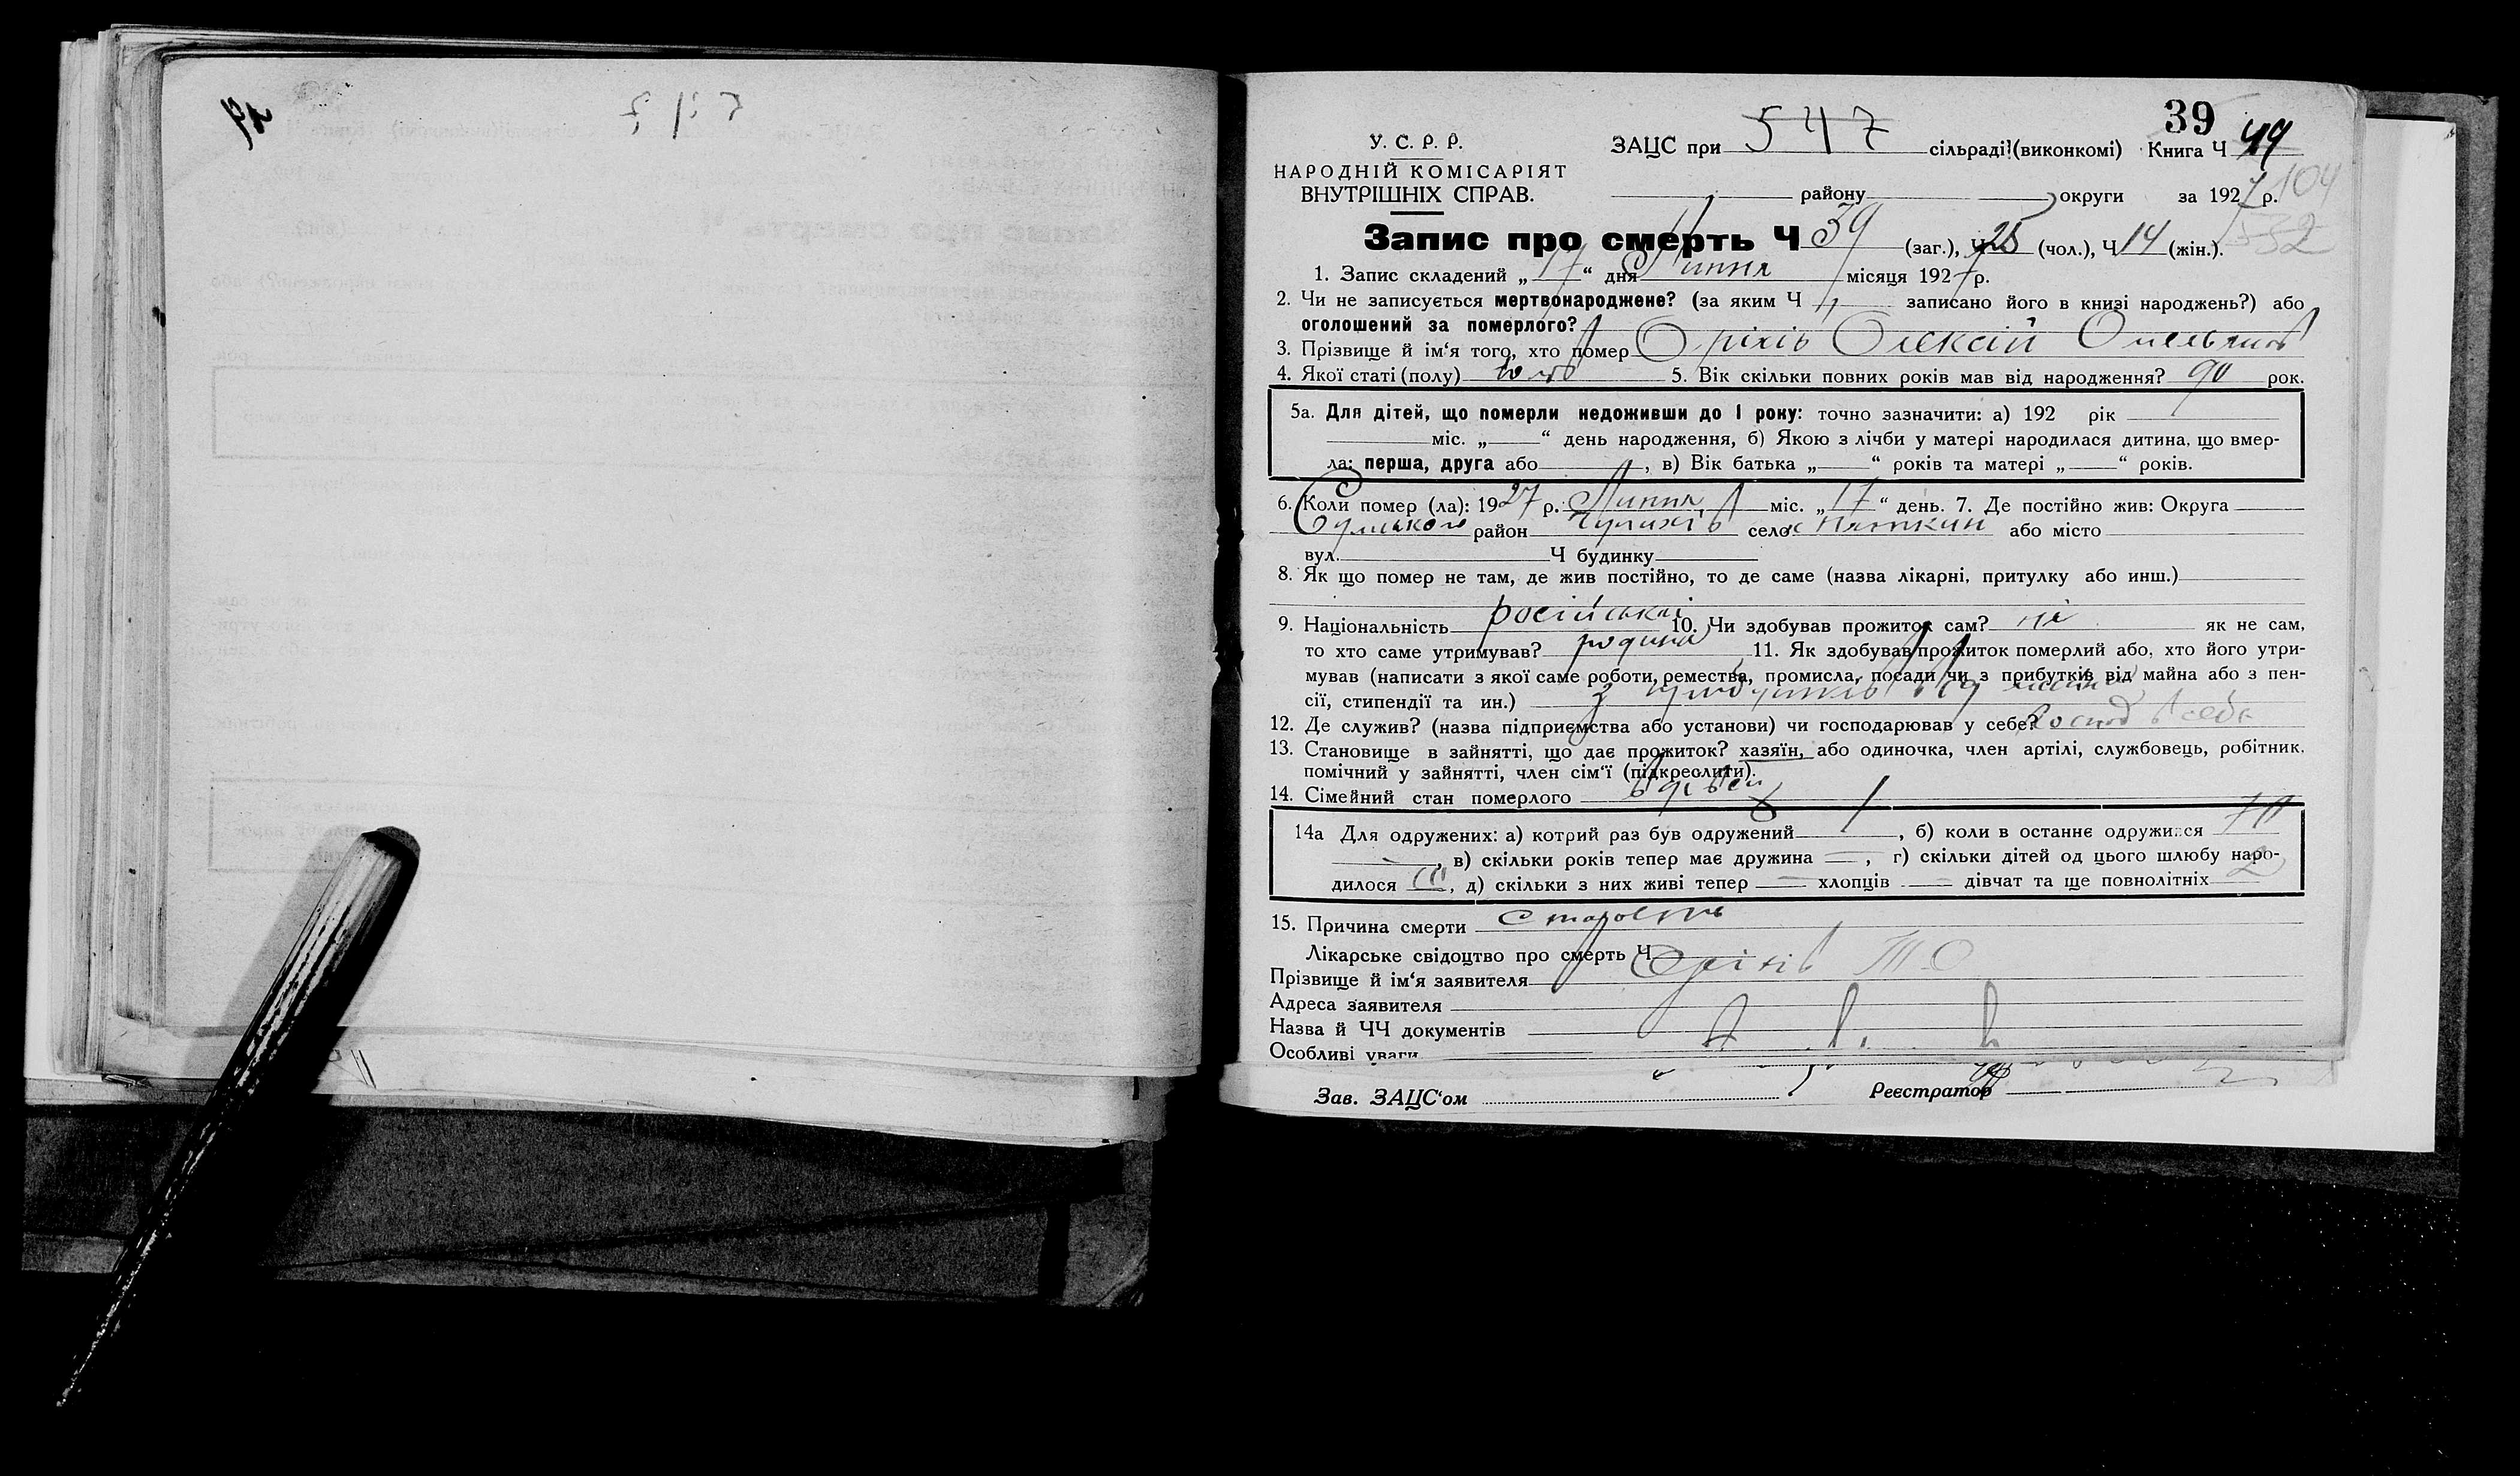 39
У. С. Р. Р.
НАРОДНІЙ КОМІСАРІЯТ
ВНУТРІШНІХ СПРАВ.
ЗАЦС при 547 сільраді (виконкомі) Книга Ч 49
району округи за 1927 р. 104
532
Запис про смерть Ч 39 (заг.), Ч 25 (чол.), Ч 14 (жін.).
1. Запис складений „ 17 “ дня Липня місяця 1927 р.
2. Чи не записується мертвонароджене? (за яким Ч записано його в книзі народжень?) або
оголошений за померлого?
3. Прізвище й ім‘я того, хто помер Оріхів Олексій Омельянов
4. Якої статі (полу) 5. Вік скільки повних років мав від народження? 90 рок.
5а. Для дітей, що померли недоживши до 1 року: точно зазначити: а) 192 рік
міс. „ “ день народження, б) Якою з лічби у матері народилася дитина, що вмер-
ла: перша, друга або , в) Вік батька „ “ років та матері „ “ років.
6. Коли помер (ла): 1927 р. Липня міс. „ 17 “ день. 7. Де постійно жив: Округа
район село або місто
вул. Ч будинку
8. Як що помер не там, де жив постійно, то де саме (назва лікарні, притулку або инш.)
9. Національність російська 10. Чи здобував прожиток сам? ні як не сам,
то хто саме утримував? родина 11. Як здобував прожиток померлий або, хто його утри-
мував (написати з якої саме роботи, ремества, промисла, посади чи з прибутків від майна або з пен-
сії, стипендії та ин.) з прибутків від майна
12. Де служив? (назва підприємства або установи) чи господарював у себе? Господ в себе
13. Становище в зайнятті, що дає прожиток? хазяїн, або одиночка, член артілі, службовець, робітник,
помічний у зайнятті, член сім‘ї (підкреслити).
14. Сімейний стан померлого вдівец
14а Для одружених: а) котрий раз був одружений 1, б) коли в останнє одружився 70
, в) скільки років тепер має дружина — , г) скільки дітей од цього шлюбу наро-
дилося , д) скільки з них живі тепер — хлопців — дівчат та ще повнолітніх 2
15. Причина смерти старость
Лікарське свідоцтво про смерть Ч
Прізвище й ім‘я заявителя Оріхів Т О
Адреса заявителя
Назва й ЧЧ документів
Особливі уваги
Зав. ЗАЦС‘ом Реєстратор